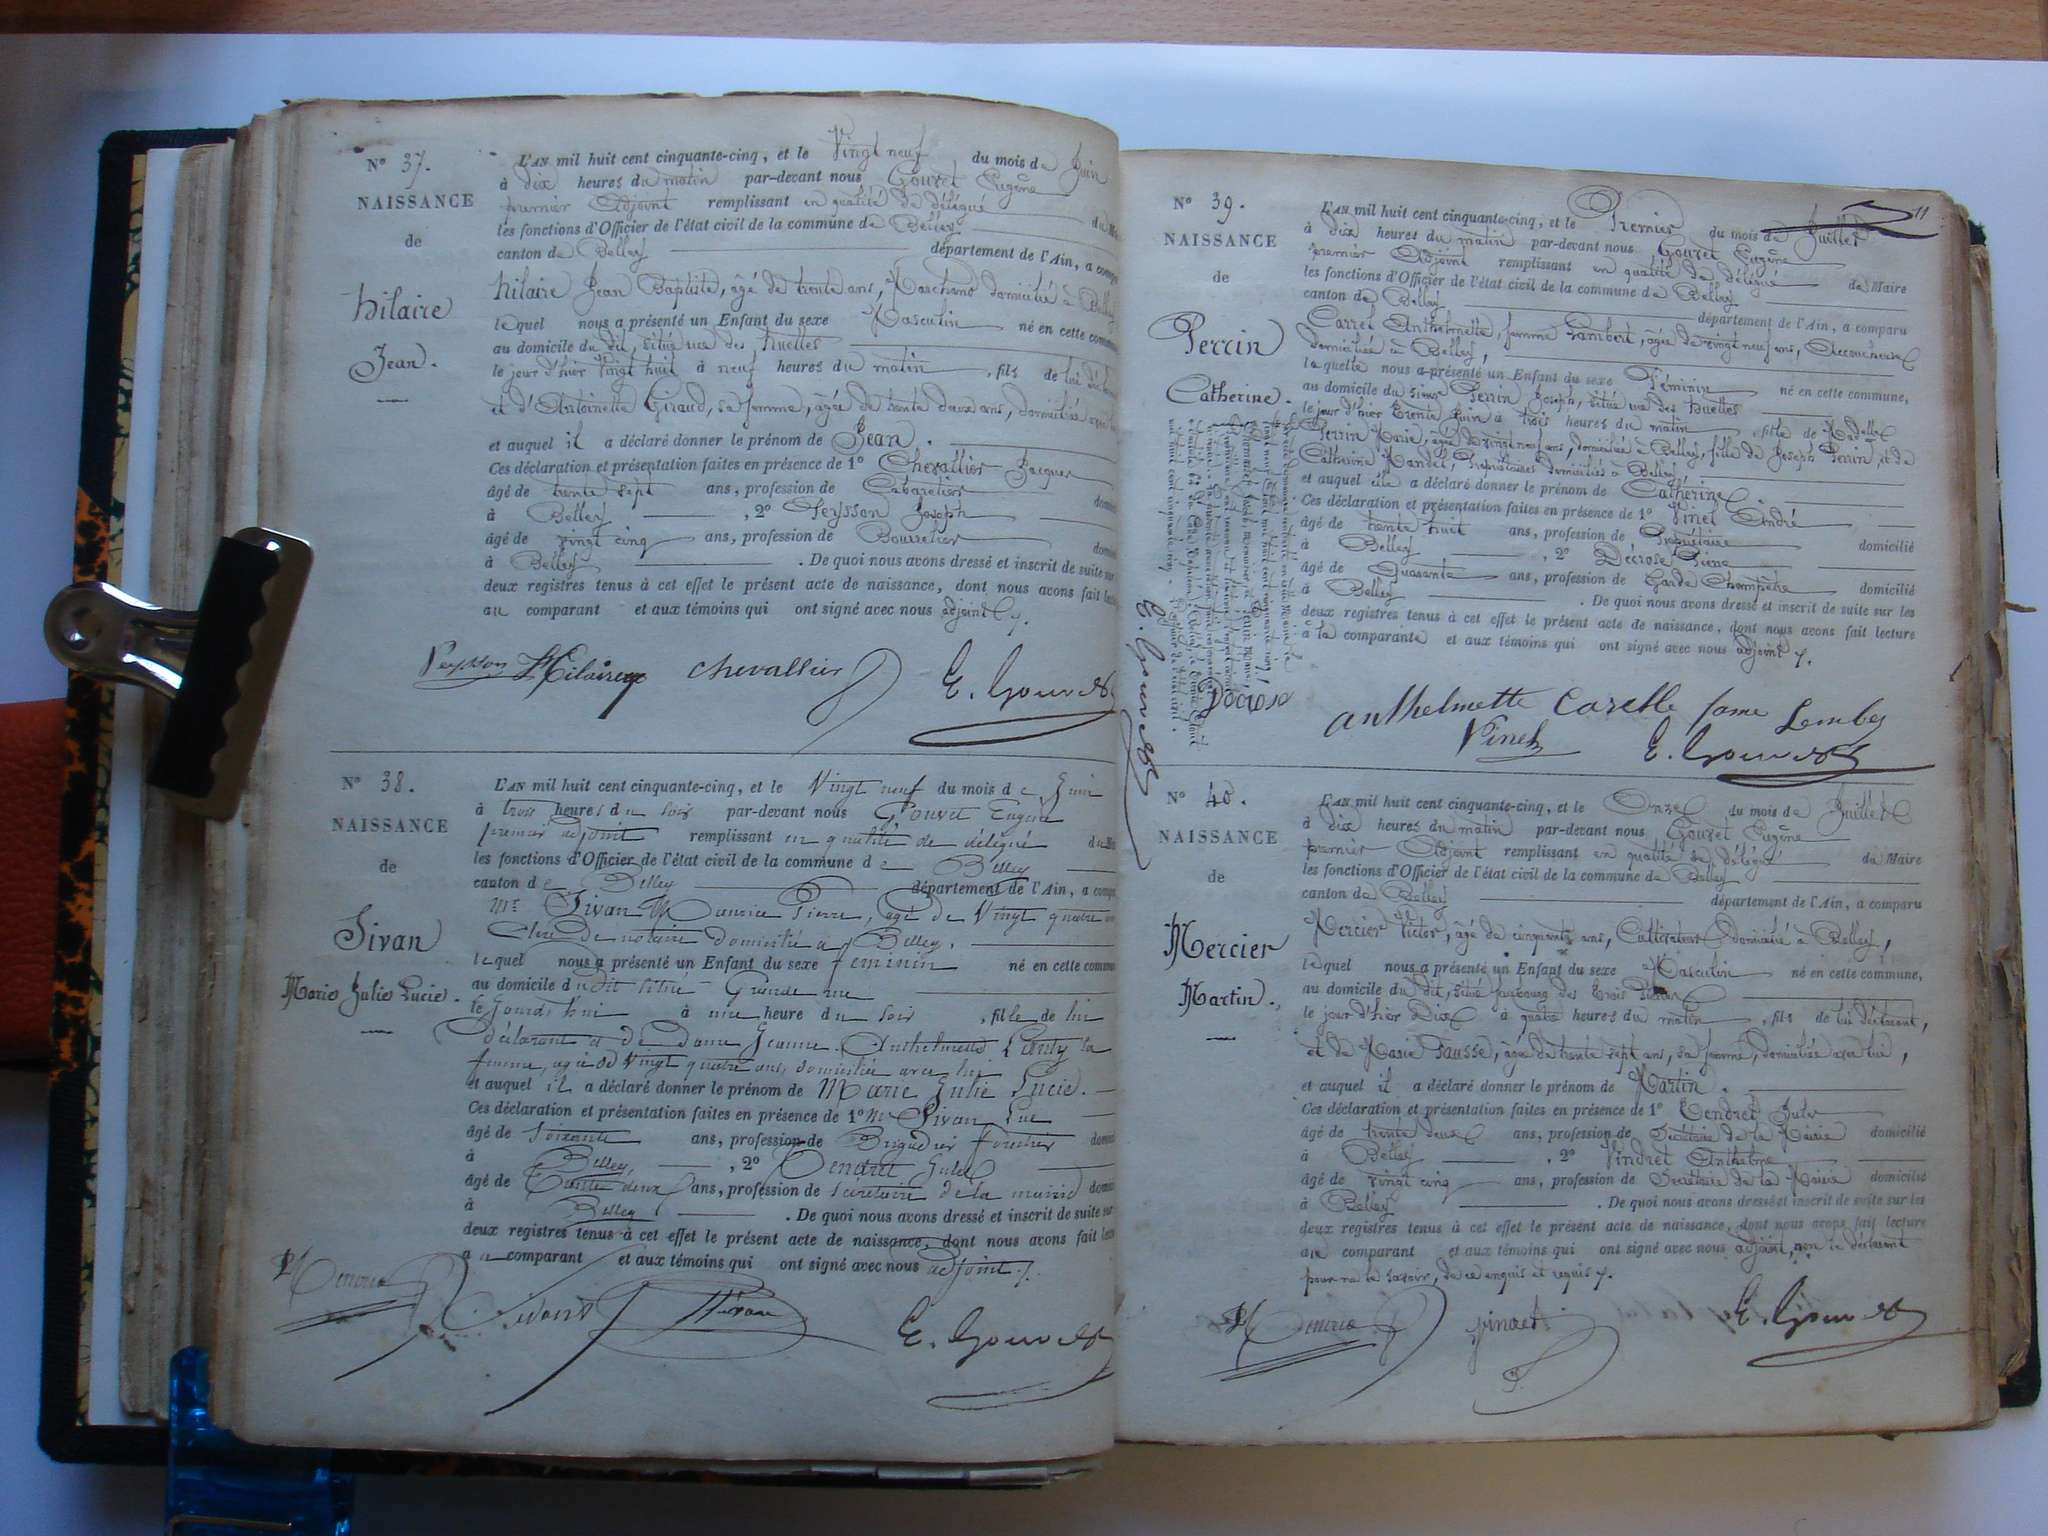 N° 37.
NAISSANCE
de
Hilaire
Jean.
L'AN mil huit cent cinquante-cinq, et le Vingt neuf du mois de Juin
à dix heures du matin par-devant nous Gouvet Eugène
premier Adjoint remplissant en qualité de délégué du
les fonctions d'Officier de l'état civil de la commune de Belley
canton de Belley département de l'Ain, a
hilaire Jean Baptiste, âgé de trente ans, Marchand domicilié à Belley
lequel nous a présenté un Enfant du sexe Masculin né en cette
au domicile du dit, situé rue des Ruelles
le jour d'hier Vingt huit à neuf heures du matin, fils de lui
et d'Antoinette Giraud, sa femme, âgée de trente deux ans, domiciliée avec
et auquel il a déclaré donner le prénom de Jean.
Ces déclaration et présentation faites en présence de 1° Chevallier Jacques
âgé de trente sept ans, profession de Cabaretier
à Belley, 2° Peysson Joseph
âgé de vingt cinq ans, profession de Bourrelier
à Belley. De quoi nous avons dressé et inscrit de suite sur
deux registres tenus à cet effet le présent acte de naissance, dont nous avons fait
au comparant et aux témoins qui ont signé avec nous adjoint
Peysson Hilaire Chevallier E. Gouvet
N° 38.
NAISSANCE
de
Sivan
Marie Julie Lucie.
L'AN mil huit cent cinquante-cinq, et le Vingt neuf du mois de Juin
à trois heures du soir par-devant nous Gouvet Eugène
premier adjoint remplissant en qualité de délégué du
les fonctions d'Officier de l'état civil de la commune de Belley
canton de Belley département de l'Ain, a
Mr Sivan Maurice Pierre, âgé de Vingt quatre
Clerc de notaire domicilié à Belley,
lequel nous a présenté un Enfant du sexe féminin né en cette
au domicile du dit situé Grande rue
le jourd'hui à une heure du soir, fille de lui
déclarant et de dame Jeanne Anthelmette sa
femme, agée de Vingt quatre ans, domiciliée avec lui
et auquel il a déclaré donner le prénom de Marie Julie Lucie.
Ces déclaration et présentation faites en présence de 1° Mr Sivan Luc
âgé de soixante ans, profession de Brigadier forestier
à Belley, 2° Tendret Jules
âgé de trente deux ans, profession de secrétaire de la mairie
à Belley. De quoi nous avons dressé et inscrit de suite sur
deux registres tenus à cet effet le présent acte de naissance, dont nous avons fait
au comparant et aux témoins qui ont signé avec nous adjoint
Sivan E. Gouvet
11
N° 39.
NAISSANCE
de
Perrin
Catherine.
L'AN mil huit cent cinquante-cinq, et le Premier du mois de Juillet
à dix heures du matin par-devant nous Gouvet Eugène
premier Adjoint remplissant en qualité de délégué du Maire
les fonctions d'Officier de l'état civil de la commune de Belley
canton de Belley département de l'Ain, a comparu
Carrel Anthelmette, femme Lambert, âgée de vingt neuf ans, Accoucheuse
domiciliée à Belley,
laquelle nous a présenté un Enfant du sexe Féminin né en cette commune,
au domicile du sieur Perrin Joseph, situé rue des Ruelles
le jour d'hier trente Juin à trois heures du matin, fille de Madelle
Perrin Marie, âgée de vingt neuf ans, domiciliée à Belley, fille de Joseph Perrin, et de
Catherine Mandel, Propriétaires domiciliés à Belley
et auquel elle a déclaré donner le prénom de Catherine
Ces déclaration et présentation faites en présence de 1° Vinet André
âgé de trente huit ans, profession de Propriétaire domicilié
à Belley, 2° Décrose Pierre
âgé de Quarante ans, profession de Garde Champêtre domicilié
à Belley. De quoi nous avons dressé et inscrit de suite sur les
deux registres tenus à cet effet le présent acte de naissance, dont nous avons fait lecture
à la comparante et aux témoins qui ont signé avec nous adjoint
E. Gouvet
anthelmette Carelle fame Lember
Vinet E. Gouvet
N° 40.
NAISSANCE
de
Mercier
Martin.
L'AN mil huit cent cinquante-cinq, et le Onze du mois de Juillet
à dix heures du matin par-devant nous Gouvet Eugène
premier Adjoint remplissant en qualité de délégué du Maire
les fonctions d'Officier de l'état civil de la commune de Belley
canton de Belley département de l'Ain, a comparu
Mercier Victor, âgé de cinquante ans, Cultivateur domicilié à Belley,
lequel nous a présenté un Enfant du sexe Masculin né en cette commune,
au domicile du dit, situé faubourg des trois
le jour d'hier Dix à quatre heures du matin, fils de lui déclarant,
et de Marie Sausse, âgée de trente sept ans, sa femme, domiciliée avec lui,
et auquel il a déclaré donner le prénom de Martin.
Ces déclaration et présentation faites en présence de 1° Tendret Jules
âgé de trente deux ans, profession de Secrétaire de la Mairie domicilié
à Belley, 2° Vindret Anthelme
âgé de vingt cinq ans, profession de Secrétaire de la Mairie domicilié
à Belley. De quoi nous avons dressé et inscrit de suite sur les
deux registres tenus à cet effet le présent acte de naissance, dont nous avons fait lecture
au comparant et aux témoins qui ont signé avec nous adjoint, non le déclarant
pour ne le savoir, de ce enquis et requis
Vindret E. Gouvet